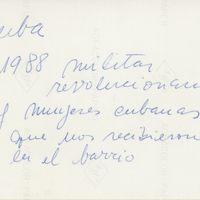 uba
1988 militar
revolucionari
y mujeres cubanas
que nos recibieron
en el barrio